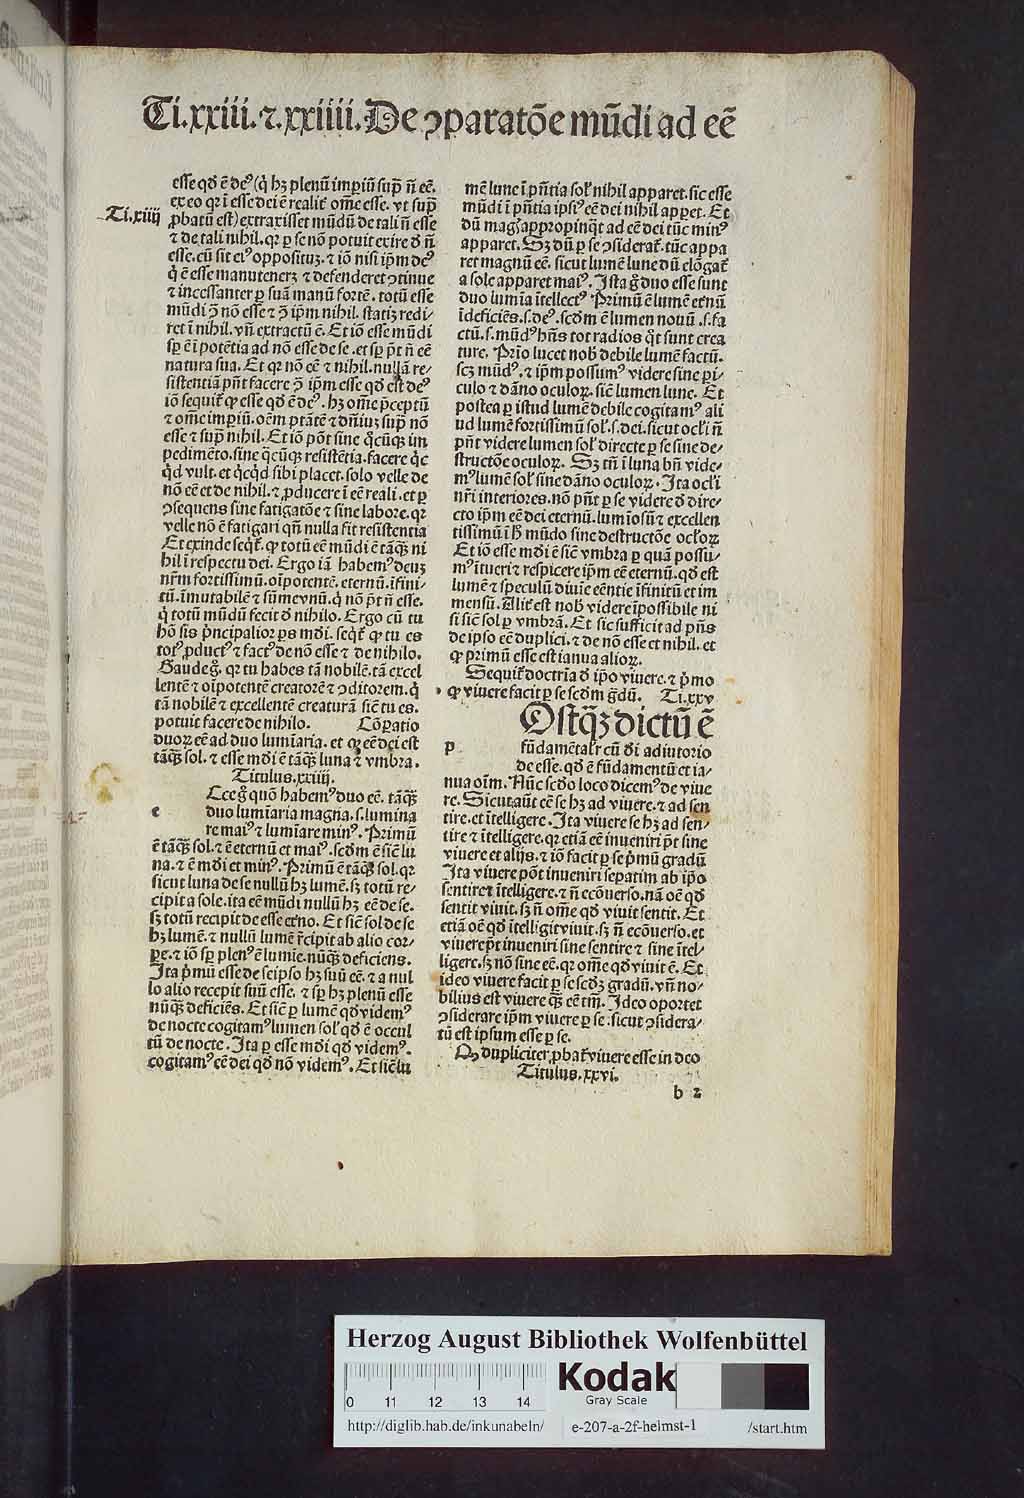 Ti.xxiii.⁊.xxiiii.De ꝯparatōe mūdi ad eē
Ti.xiiij
esse qđ ē deꝰ (q̇ hꝫ plenū imꝑiū suꝑ nō eē.
ex eo qꝛ ī esse dei ē realit̃ om̄e esse. vt supͣ
ꝓbatū est) extraxisset mūdū de tali nō esse
⁊ de tali nihil. qꝛ ꝑ se nō potuit exire đ nō
esse. cū sit eiꝰ oppositū. ⁊ iō nisi ip̄m deꝰ
q̇ ē esse manuteneret ⁊ defenderet ꝯtinue
⁊ incessanter ꝑ suā manū fortē. totū esse
mūdi ꝓ nō esse ⁊ ꝓ ip̄m nihil. statiꝫ redi⸗
ret ī nihil. vñ extractū ē. Et iō esse mūdi
sꝑ ē ī potētia ad nō esse de se. et sꝑ pōt nō eē
natura sua. Et qꝛ nō eē ⁊ nihil. nullā re⸗
sistentiā pñt facere ꝓ ip̄m esse qđ est deꝰ
iō sequit̃ ꝙ esse qđ ē deꝰ. hꝫ om̄e p̄ceptū
⁊ om̄e imꝑiū. oēm ptātē ⁊ dn̄iuꝫ suꝑ nō
esse ⁊ suꝑ nihil. Et iō pōt sine q̊cūqꝫ im
pedimēto. sine q̊cūqꝫ resistētia. facere q̇c
q̇d vult. et q̇cq̇d sibi placet. solo velle de
nō eē et de nihil. ⁊ ꝓducere ī eē reali. et ꝑ
ꝯsequens sine fatigatōe ⁊ sine labore. qꝛ
velle nō ē fatigari qñ nulla fit resistentia
Et exinde seqt̃. ꝙ totū eē mūdi ē tāqꝫ ni
hil ī respectu dei. Ergo iā habemꝰ deuꝫ
nr̄m fortissimū. oīpotentē. eternū. īfini⸗
tū. īmutabilē ⁊ sūmenū. q̇ nō pōt nō esse.
q̇ totū mūdū fecit đ nihilo. Ergo cū tu
hō sis p̄ncipalior ꝑs mūdi. seqt̃ ꝙ tu es
totꝰ ꝓductꝰ ⁊ factꝰ de nō esse ⁊ de nihilo.
Gaude gͦ. qꝛ tu habes tā nobilē. tā excel
lentē ⁊ oīpotentē creatorē ⁊ ꝯditorem. q̇
tā nobilē ⁊ excellentē creaturā siē tu es.
potuit facere de nihilo. Cōꝑatio
duoꝝ eē ad duo lumīaria. et ꝙ eē dei est
tāqꝫ sol. ⁊ esse mūdi ē tāqꝫ luna ⁊ vmbra.
Titulus.xxiiij.
e Cce gͦ quō habemꝰ duo eē. tāqꝫ
duo lumīaria magna. s. lumina
re maiꝰ ⁊ lumīare minꝰ. Primū
ē tāqꝫ sol. ⁊ ē eternū et maiꝰ. scđm ē siē lu
na. ⁊ ē mūdi et minꝰ. Primū ē tāqꝫ sol. qꝛ
sicut luna de se nullū hꝫ lumē. sꝫ totū re⸗
cipit a sole. ita eē mūdi nullū hꝫ eē de se.
sꝫ totū recipit de esse etno. Et siē sol de se
hꝫ lumē. ⁊ nullū lumē r̄cipit ab alio cor⸗
ꝑe. ⁊ iō sꝑ plenꝰ ē lumīe. nūqꝫ deficiens.
Ita p̄mū esse de seipso hꝫ suū eē. ⁊ a nul
lo alio recepit suū esse. ⁊ sꝑ hꝫ plenū esse
nūqꝫ deficiēs. Et siē ꝑ lumē qđ videmꝰ
de nocte cogitamꝰ lumen sol̕ qđ ē occul
tū de nocte. Ita ꝑ esse mūdi qđ videmꝰ.
cogitamꝰ eē dei qđ nō videmꝰ. Et siē lu
mē lune ī pn̄tia sol̕ nihil apparet. sic esse
mūdi ī pn̄tia ipsiꝰ eē dei nihil apꝑet. Et
dū magꝭ appropinqͣt ad eē dei tūc minꝰ
apparet. Sꝫ dū ꝑ se ꝯsiderat̃. tūc appa
ret magnū eē. sicut lumē lune dū elōgat̃
a sole apparet maiꝰ. Ista gͦ duo esse sunt
duo lumīa ītellectꝰ. Primū ē lumē etnū
īdeficiēs. s. deꝰ. scđm ē lumen nouū. s. fa
ctū. s. mūdꝰ hn̄s tot radios q̊t sunt crea
ture. Prīo lucet nob̕ debile lumē factū.
scꝫ mūdꝰ. ⁊ ip̄m possumꝰ videre sine ꝑi⸗
culo ⁊ dāno oculoꝝ. siē lumen lune. Et
postea ꝑ istud lumē debile cogitamꝰ ali
ud lumē fortissimū sol̕. s. dei. sicut ocl̕i nō
pn̄t videre lumen sol̕ directe ꝑ se sine de⸗
structōe oculoꝝ. Sꝫ tn̄ ī luna bn̄ vide⸗
mꝰ lumē sol̕ sine dāno oculoꝝ. Ita ocl̕i
nr̄i interiores. nō pn̄t ꝑ se videre đ dire⸗
cto ip̄m eē dei eternū. lumīosū ⁊ excellen
tissimū ī hͦ mūdo sine destructōe ocl̕oꝝ
Et iō esse mūdi ē siē vmbra ꝑ quā possu⸗
mꝰ ītueri ⁊ respicere ip̄m eē eternū. qđ est
lumē ⁊ speculū diuīe eēntie īfinitū et im
mensū. Alit̃ est nob̕ videre īpossibile ni
si siē sol ꝑ vmbrā. Et sic sufficit ad pn̄s
de ipso eē duplici. ⁊ de nō esse et nihil. et
ꝙ primū esse est ianua alioꝝ.
Sequit̃ doctrīa đ ip̄o viuere. ⁊ p̄mo
ꝙ viuere facit ꝑ se scđm gͣdū. Ti.xxv
p Ostqꝫ dictū ē
fūdamētalr̄ cū đi adiutorio
de esse. qđ ē fūdamentū et ia⸗
nua oīm. Nūc scđo loco dicemꝰ de viue
re. Sicut aūt eē se hꝫ ad viuere. ⁊ ad sen
tire. et ītelligere. Ita viuere se hꝫ ad sen⸗
tire ⁊ ītelligere. qꝛ etiā eē inueniri pōt sine
viuere et alijs. ⁊ iō facit ꝑ se p̄mū gradū
Ita viuere pōt inueniri sepatim ab ip̄o
sentire ⁊ ītelligere. ⁊ nō ecōuerso. nā oē qđ
sentit viuit. sꝫ nō om̄e qđ viuit sentit. Et
etiā oē qđ ītelligit viuit. sꝫ nō ecōuerso. et
viuere pōt inueniri sine sentire ⁊ sine ītel⸗
ligere. sꝫ nō sine eē. qꝛ om̄e qđ viuit ē. Et
ideo viuere facit ꝑ se scđꝫ gradū. vñ no⸗
bilius est viuere qꝫ eē tm̄. Ideo oportet
ꝯsiderare ip̄m viuere ꝑ se. sicut ꝯsidera⸗
tū est ipsum esse ꝑ se.
Qꝙ dupliciter ꝓbat̃ viuere esse in deo
Titulus.xxvi.
b 2
Herzog August Bibliothek Wolfenbüttel
0 11 12 13 14
Kodak
Gray Scale
http://diglib.hab.de/inkunabeln/ e-207-a-2f-helmst-1 /start.htm